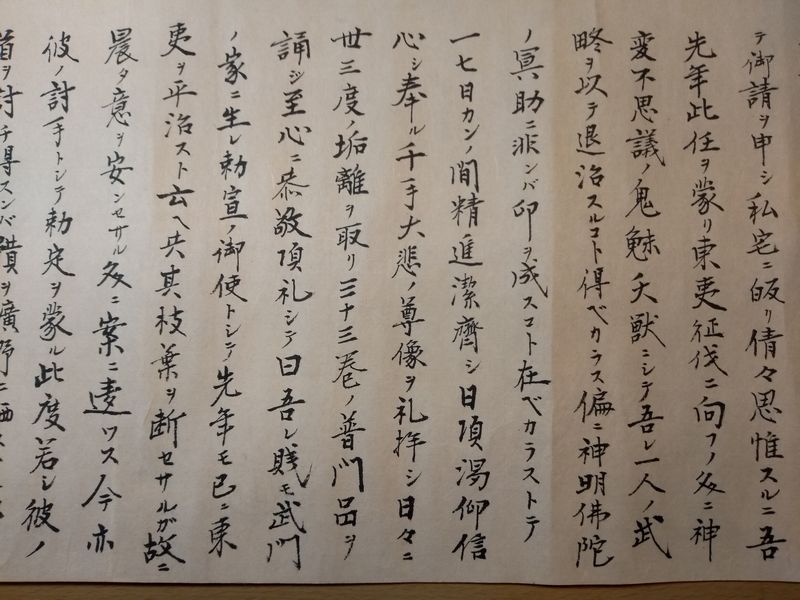 テ御請ヲ申シ私宅ニ皈リ倩々思惟スルニ吾
先年此任ヲ蒙リ東夷征伐ニ向フノ処ニ神
変不思議ノ鬼魅夭獣ニシテ吾レ一人ノ武
略ヲ以テ退治スルコト得ベカラス偏ニ神明佛陀
ノ冥助ニ非ンバ卬ヲ成スコト在ベカラストテ
一七日カンノ間精進潔齊シ日頃渇仰信
心シ奉ル千手大悲ノ尊像ヲ礼拝シ日々ニ
丗三度ノ垢離ヲ取リ三十三巻ノ普門品ヲ
誦シ至心ニ恭敬頂礼シテ曰吾レ賎モ武門
ノ家ニ生レ勅宣ノ御使トシテ先年モ已ニ東
夷ヲ平治スト云ヘ共其枝葉ヲ断セサルガ故ニ
晨夕意ヲ安ンセサル処ニ案ニ違ワス今亦
彼ノ討手トシテ勅定ヲ蒙ル此度若シ彼ノ
酋ヲ討チ得スンバ骸ヲ廣野ニ